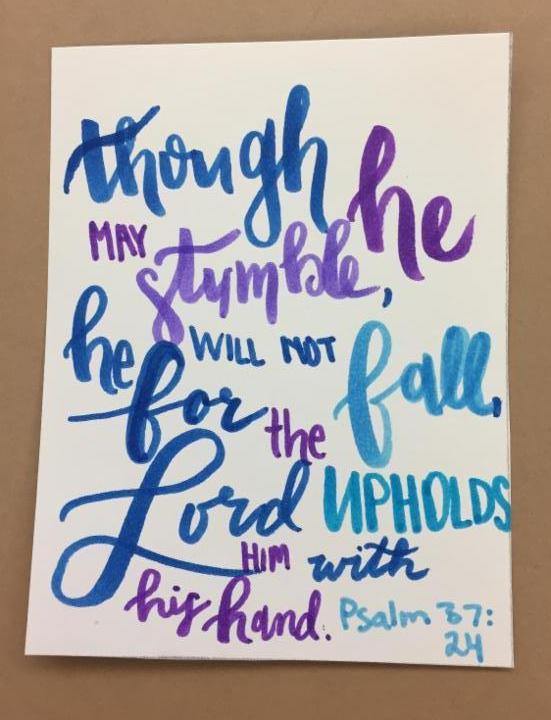 though he
MAY stumble,
he WILL NOT fall,
for the
Lord UPHOLDS
HIM with
his hand. Psalm 37:
24